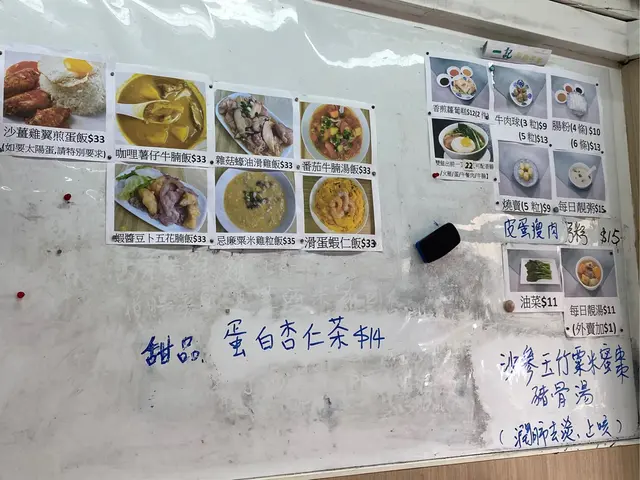 沙薑雞翼煎蛋飯$33
(如要太陽蛋,請特別要求)
咖哩薯仔牛腩飯$33
雜菇蠔油滑雞飯$33
番茄牛腩湯飯$33
蝦醬豆卜五花腩飯$33
忌廉粟米雞粒飯$35
滑蛋蝦仁飯$33
一起
香煎蘿蔔糕$12(2件)
牛肉球(3粒)$9
(5粒)$13
腸粉(4條)$10
(6條)$13
燒賣(5粒)$9
每日靚粥$15
皮蛋瘦肉粥 $15
油菜$11
每日靚湯$11
(外賣加$1)
甜品: 蛋白杏仁茶$14
沙參玉竹粟米蜜棗
豬骨湯
(潤肺去燥、止咳)